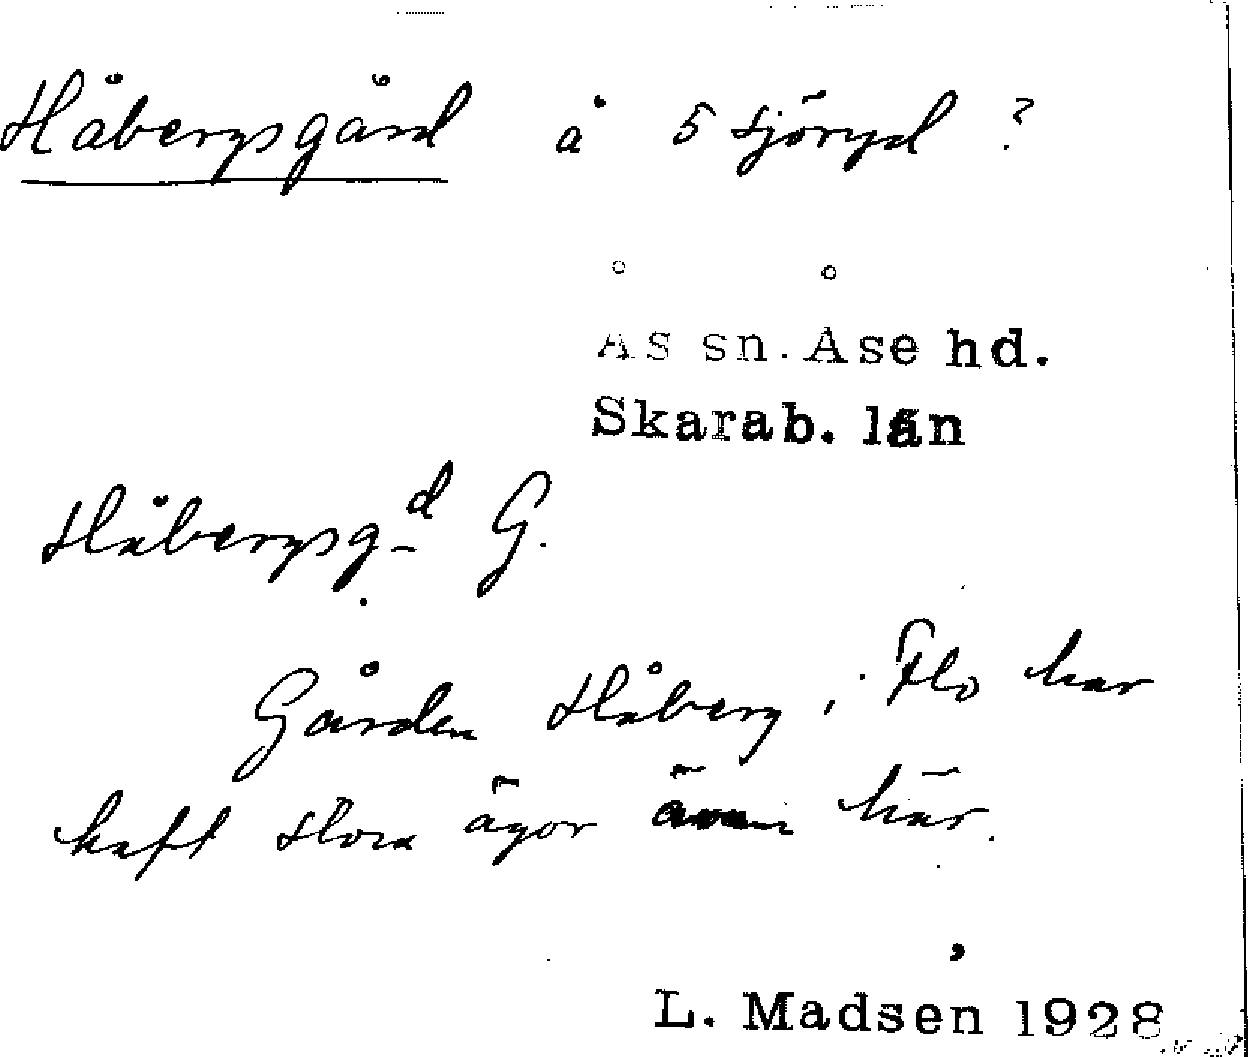 Håbergsgård å 5 Sjöryd ?
Ås sn. Åse hd.
Skarab. län
Håbergsg-d G.
Gården Håberg i Flo har
haft stora ägor även här.
L. Madsen 1928